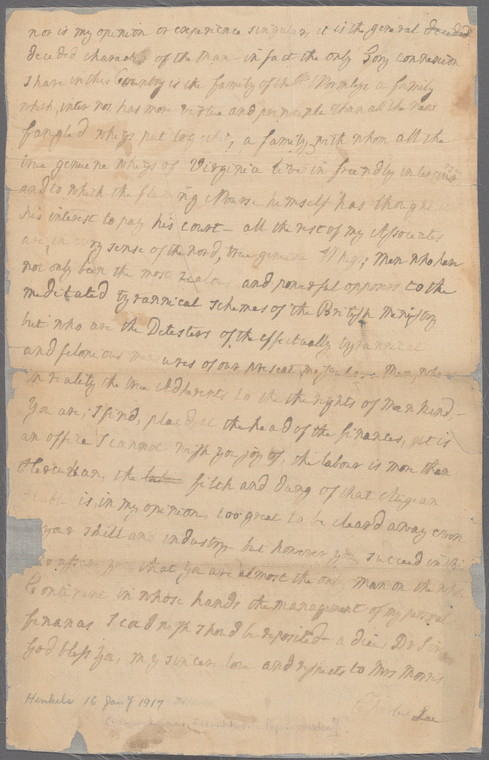 nor is my opinion or experience singular, it is the general decided
decided character of the man - in fact the only Tory connexion
I have in this Country is the family of the Wormlys a family
which, inter nos, has more virtue and principle than all the new
fangled whigs put together, a family with whom all the
true genuine whigs of Virginia live in friendly
and to which the flaming Nourse himself has thought it
his interest to pay his court - all the rest of my Associates
are, in every sense of the word, true genuine Whigs; Men who have
not only been the most zealous and powerful opposers to the
meditated tyrannical schemes of the British Ministry
but who are the Detesters of the effectually tyrannical
and felonious measures of our present Men, who
in reality the true Adherents to the the rights of Mankind -
You are, I find, plac'd at the head of the finances, yet is
an office I cannot wish you joy of, the labour is more than
Herculean, the filth and dung of that Augean
Stable is, in my opinion too great to be cleard away even
your skill and industry but however you succeed in
you, that you are almost the only man on the whole
Continent in whose hands the management of my personal
finances I cou'd wish shou'd be reposited - adieu Dr Sir
God bless you, my sincere love and respects to Mrs Morris
Charles Lee
Henkels 16 Jan'y 1917